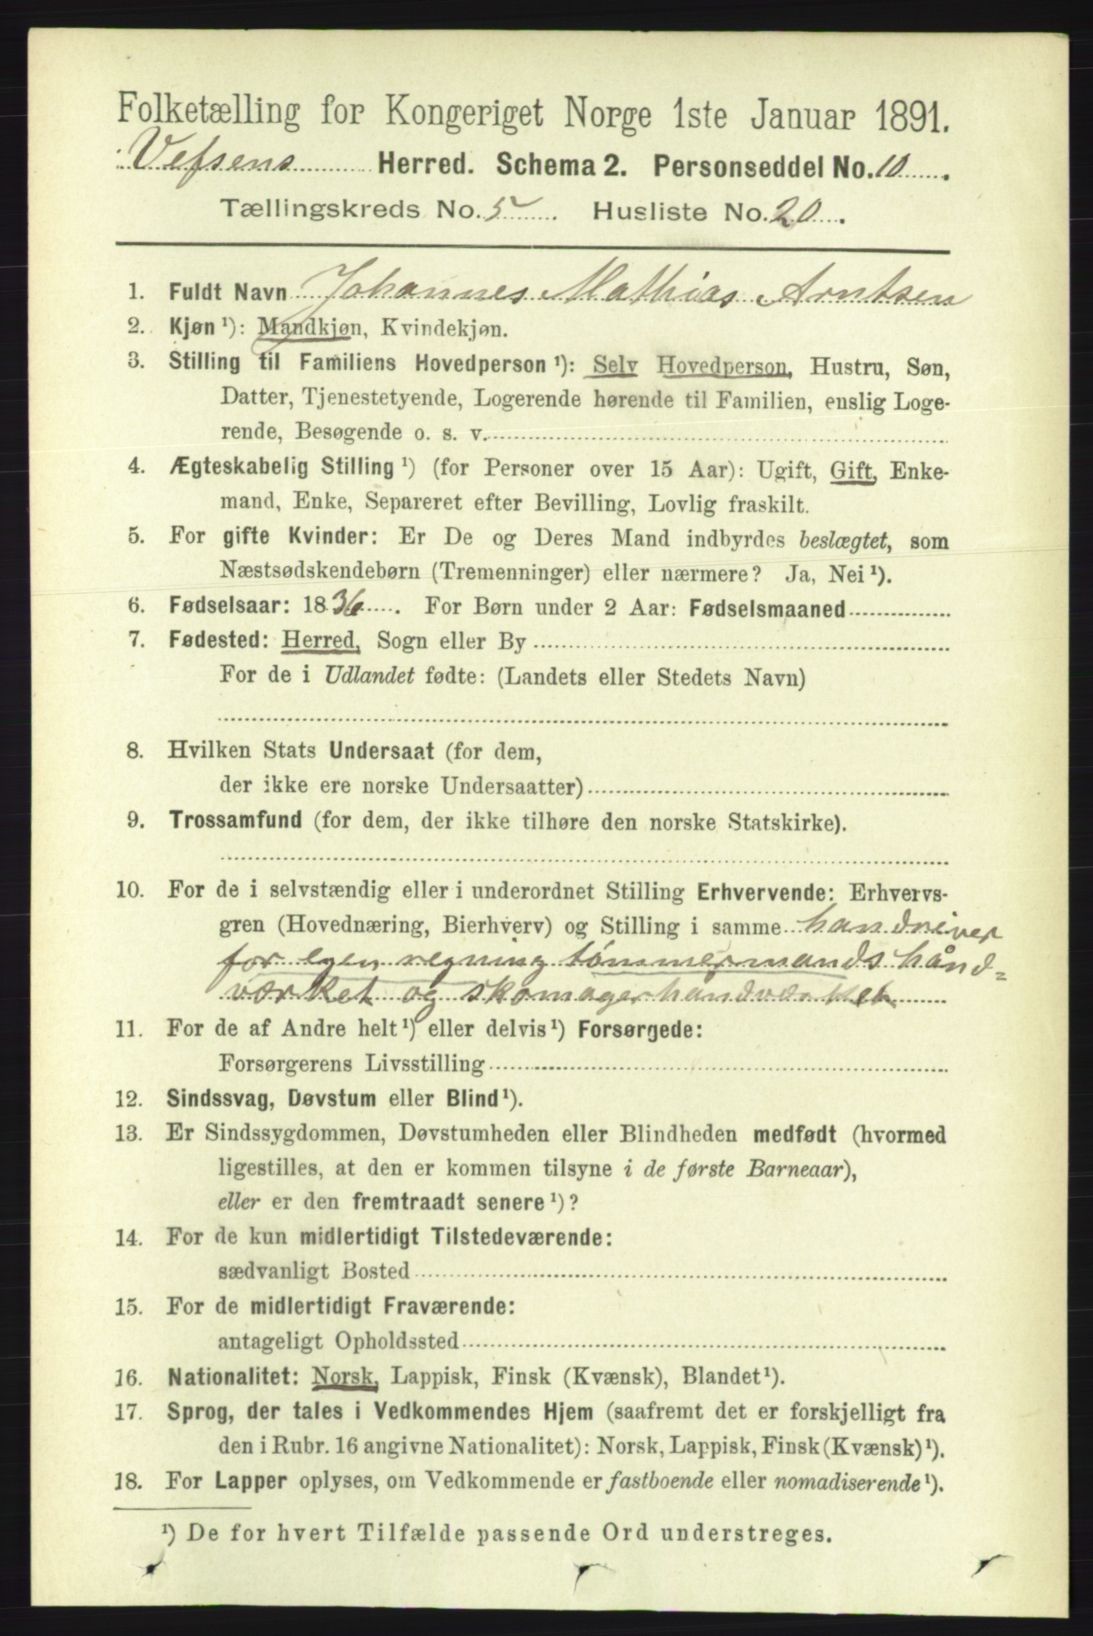 Folketælling for Kongeriget Norge 1ste Januar 1891.
Vefsens Herred. Schema 2. Personseddel No. 10.
Tællingskreds No. 5. Husliste No. 20.
1. Fuldt Navn Johannes Mathias Arntsen
2. Kjøn ¹): Mandkjøn, Kvindekjøn.
3. Stilling til Familiens Hovedperson ¹): Selv Hovedperson, Hustru, Søn,
Datter, Tjenestetyende, Logerende hørende til Familien, enslig Loge-
rende, Besøgende o. s. v.
4. Ægteskabelig Stilling ¹) (for Personer over 15 Aar): Ugift, Gift, Enke-
mand, Enke, Separeret efter Bevilling, Lovlig fraskilt.
5. For gifte Kvinder: Er De og Deres Mand indbyrdes beslægtet, som
Næstsødskendebørn (Tremenninger) eller nærmere? Ja, Nei ¹).
6. Fødselsaar: 1836. For Børn under 2 Aar: Fødselsmaaned
7. Fødested: Herred, Sogn eller By
For de i Udlandet fødte: (Landets eller Stedets Navn)
8. Hvilken Stats Undersaat (for dem,
der ikke ere norske Undersaatter)
9. Trossamfund (for dem, der ikke tilhøre den norske Statskirke).
10. For de i selvstændig eller i underordnet Stilling Erhvervende: Erhvervs-
gren (Hovednæring, Bierhverv) og Stilling i samme han driver
for egen regning tømmermands hånd=
værket og skomagerhåndværket
11. For de af Andre helt ¹) eller delvis ¹) Forsørgede:
Forsørgerens Livsstilling
12. Sindssvag, Døvstum eller Blind ¹).
13. Er Sindssygdommen, Døvstumheden eller Blindheden medfødt (hvormed
ligestilles, at den er kommen tilsyne i de første Barneaar),
eller er den fremtraadt senere ¹)?
14. For de kun midlertidigt Tilstedeværende:
sædvanligt Bosted
15. For de midlertidigt Fraværende:
antageligt Opholdssted
16. Nationalitet: Norsk, Lappisk, Finsk (Kvænsk), Blandet ¹).
17. Sprog, der tales i Vedkommendes Hjem (saafremt det er forskjelligt fra
den i Rubr. 16 angivne Nationalitet): Norsk, Lappisk, Finsk (Kvænsk) ¹).
18. For Lapper oplyses, om Vedkommende er fastboende eller nomadiserende ¹).
¹) De for hvert Tilfælde passende Ord understreges.